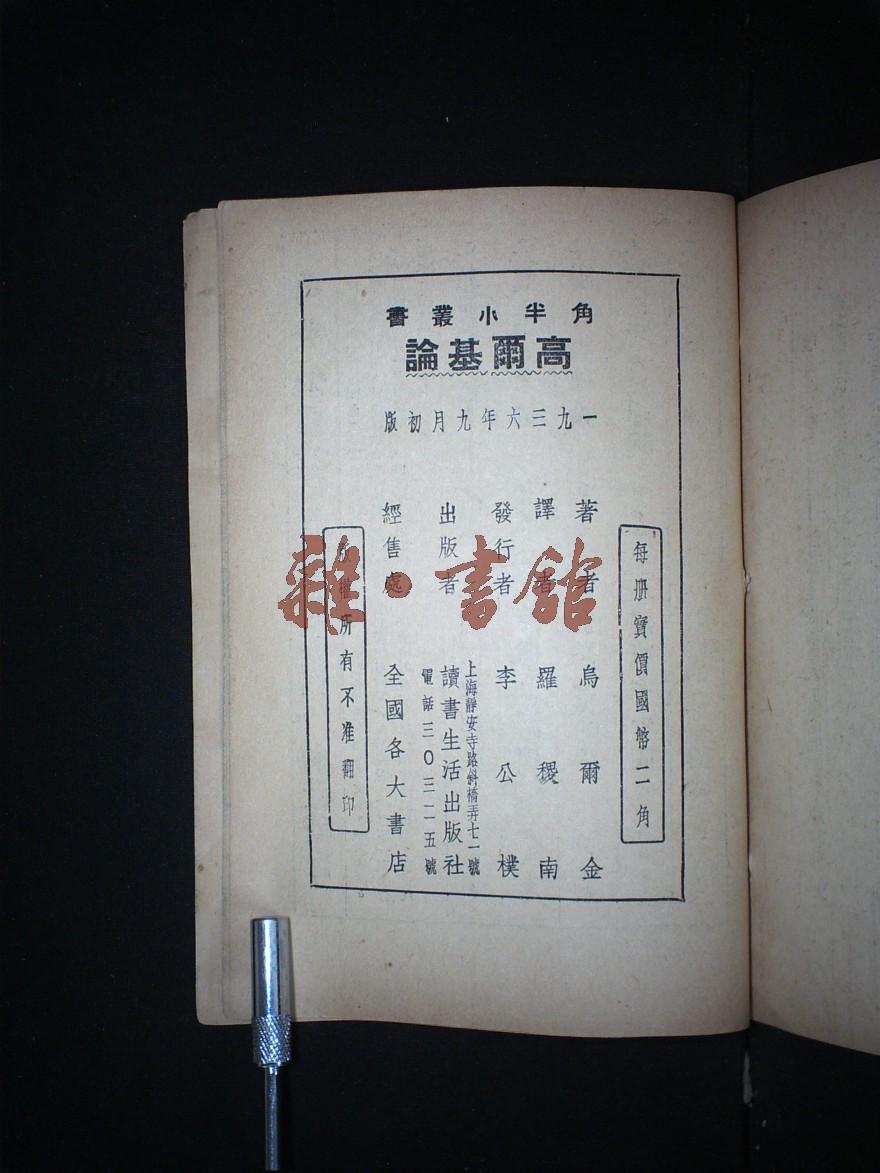 角半小叢書
高爾基論
一九三六年九月初版
每册實價國幣二角
著者 烏爾金
譯者 羅稷南
發行者 李公樸
出版者 讀書生活出版社
上海靜安寺路斜橋弄七一號
電話三〇三二五號
經售處 全國各大書店
版權所有不准翻印
雜·書館